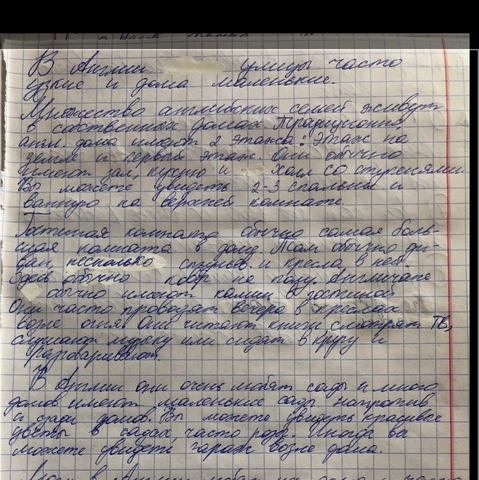 В Англии улицы часто
узкие и дома маленькие.
Множество английских семей живут
в собственных домах. Традиционно,
англ. дома имеют 2 этажа: этаж на
земле и первый этаж. Они обычно
имеют зал, кухню и холл со ступенями
Вы можете увидеть 2-3 спальни и
ванную на верхней комнате.
Гостиная комната обычно самая боль-
шая комната в доме. Там обычно ди-
ван, несколько стульев и кресла в ней.
Здесь обычно ковёр на полу. Англичане
обычно имеют камин в гостиной.
Они часто проводят вечера в креслах
возле огня. Они читают книги, смотрят ТВ,
слушают музыку или сидят в кругу и
разговаривают.
В Англии они очень любят сады и много
домов имеют маленькие сады напротив
и сзади домов. Вы можете увидеть красивые
цветы в садах, часто розы. Иногда вы
можете увидеть гараж возле дома.